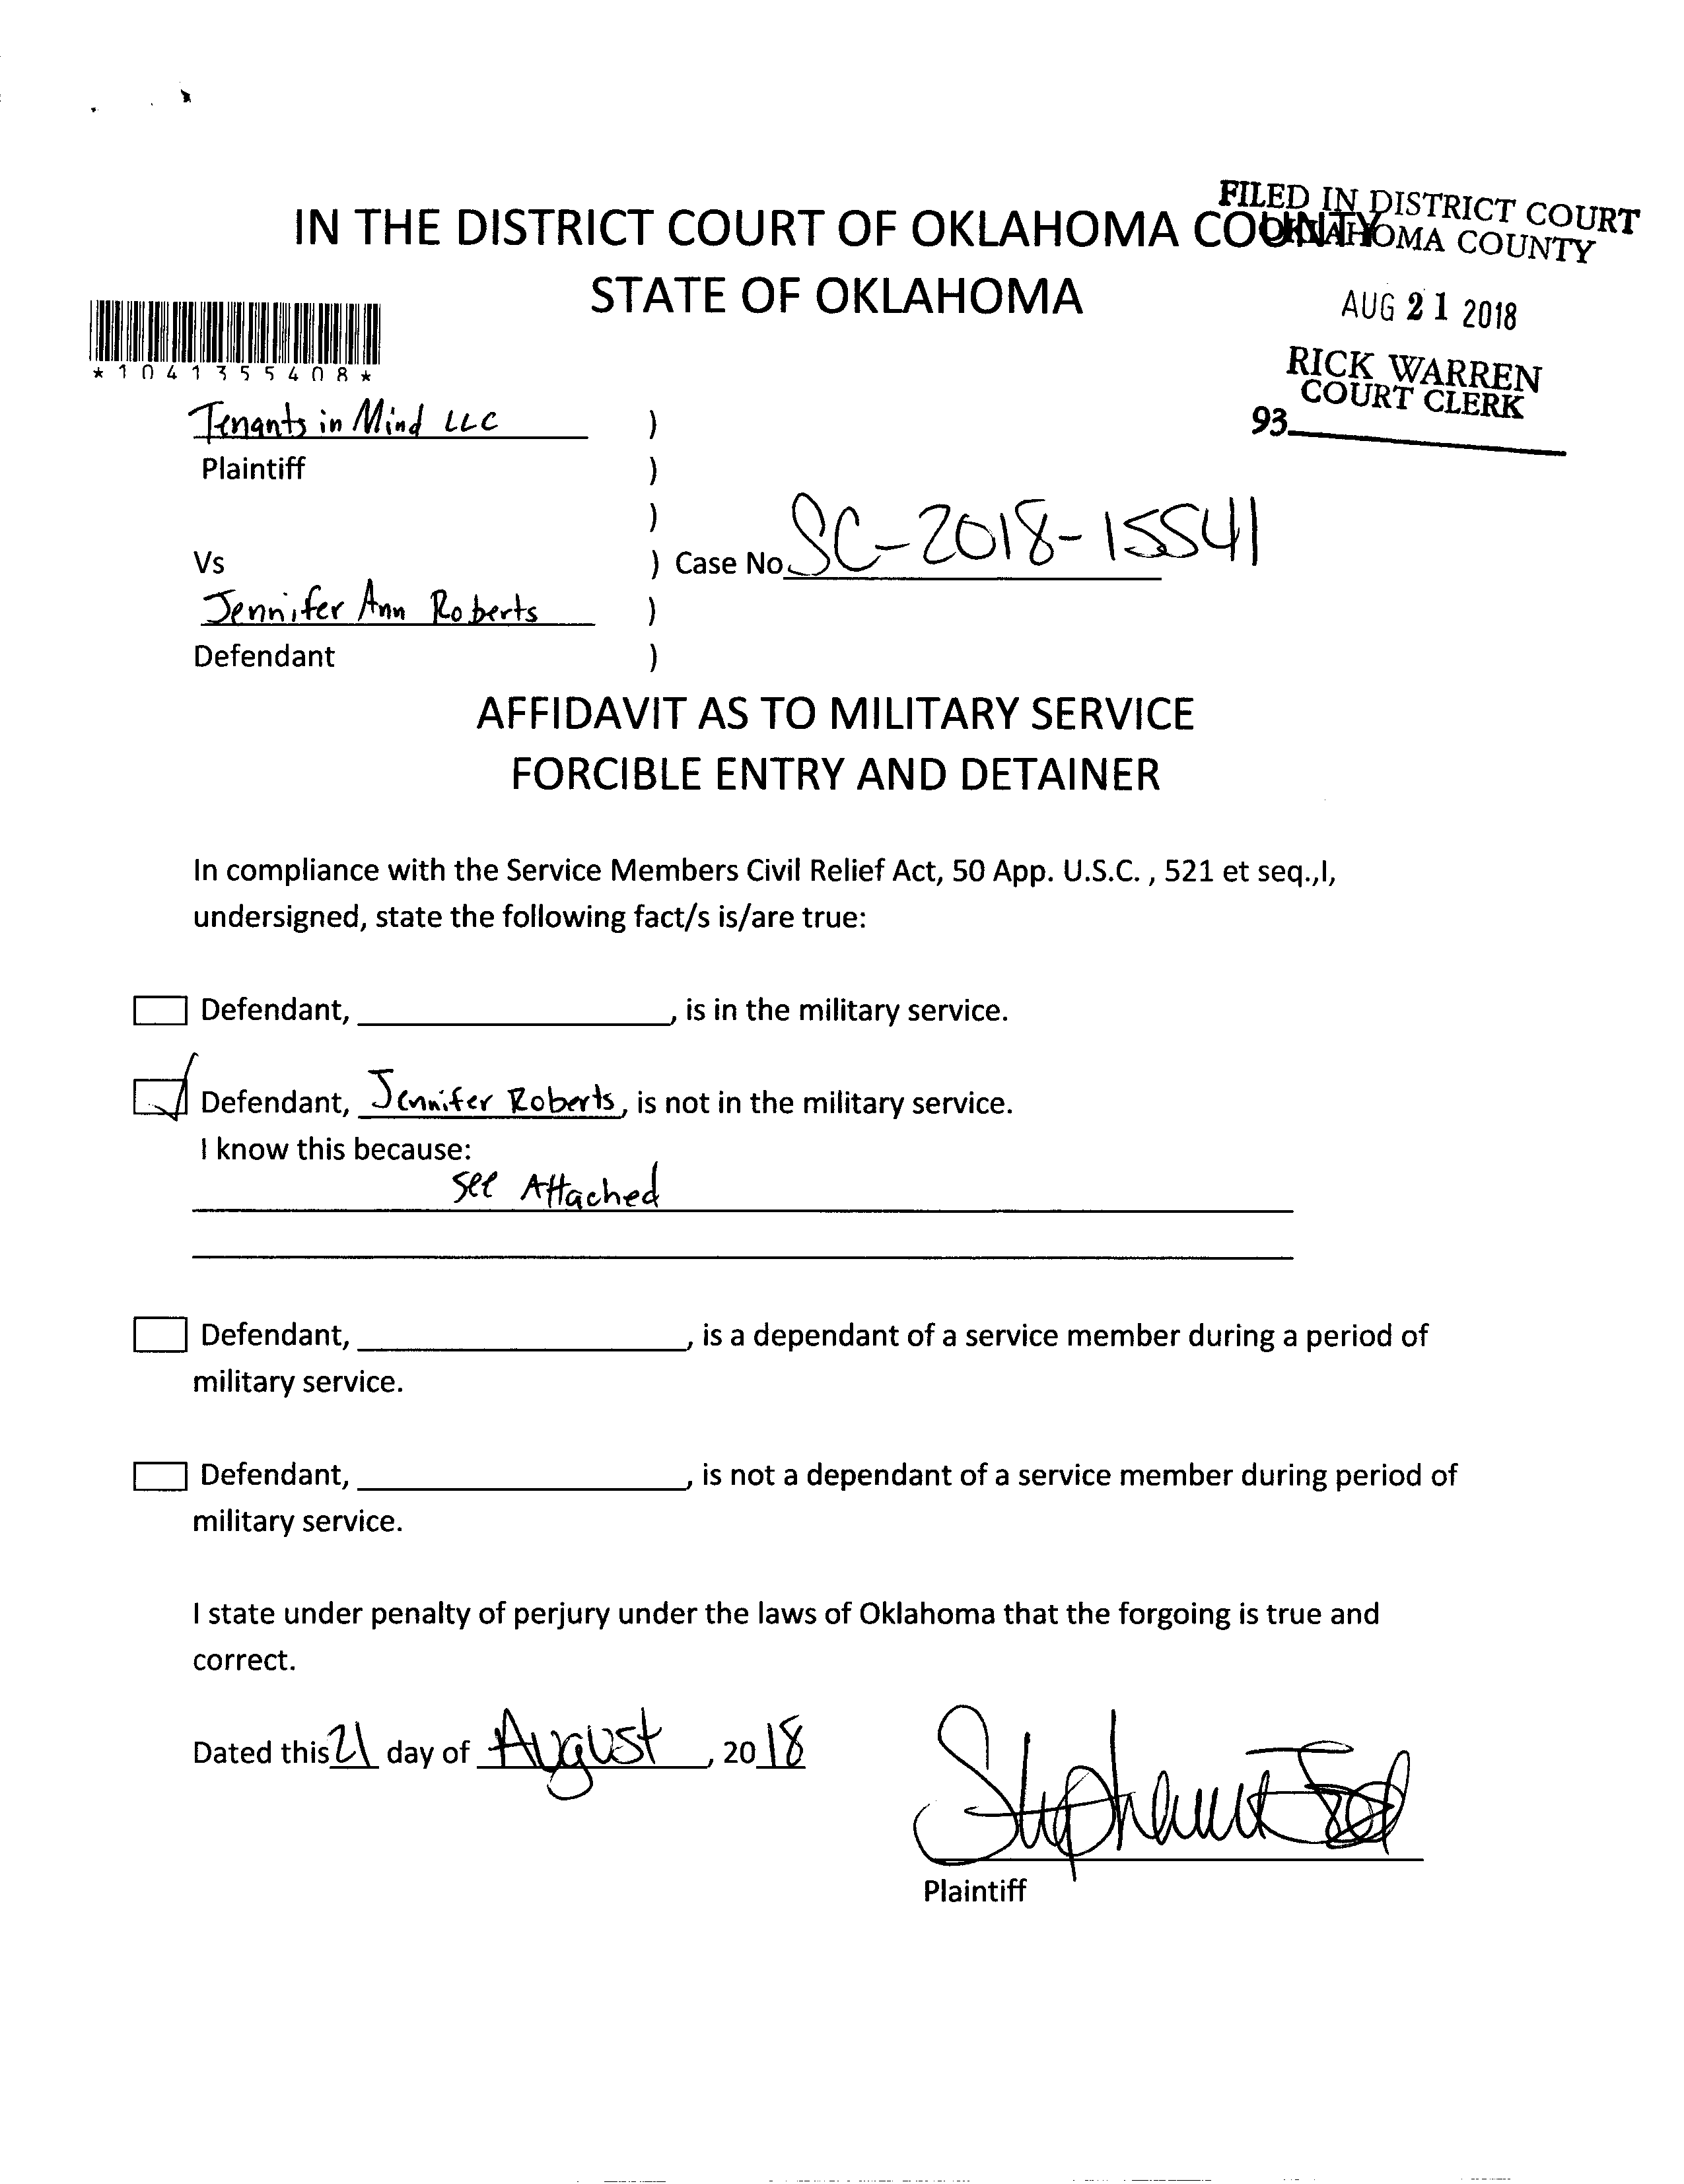 FILED IN DISTRICT COURT
OKLAHOMA COUNTY
IN THE DISTRICT COURT OF OKLAHOMA COUNTY
STATE OF OKLAHOMA
AUG 21 2018
RICK WARREN
COURT CLERK
93
*1041355408*
Tenants in Mind LLC )
Plaintiff )
)
Vs ) Case No. SC-2018-15541
Jennifer Ann Roberts )
Defendant )
AFFIDAVIT AS TO MILITARY SERVICE
FORCIBLE ENTRY AND DETAINER
In compliance with the Service Members Civil Relief Act, 50 App. U.S.C. , 521 et seq.,I,
undersigned, state the following fact/s is/are true:
Defendant, , is in the military service.
Defendant, Jennifer Roberts, is not in the military service.
I know this because:
See Attached
Defendant, , is a dependant of a service member during a period of
military service.
Defendant, , is not a dependant of a service member during period of
military service.
I state under penalty of perjury under the laws of Oklahoma that the forgoing is true and
correct.
Dated this 21 day of August, 2018
Stephanie
Plaintiff